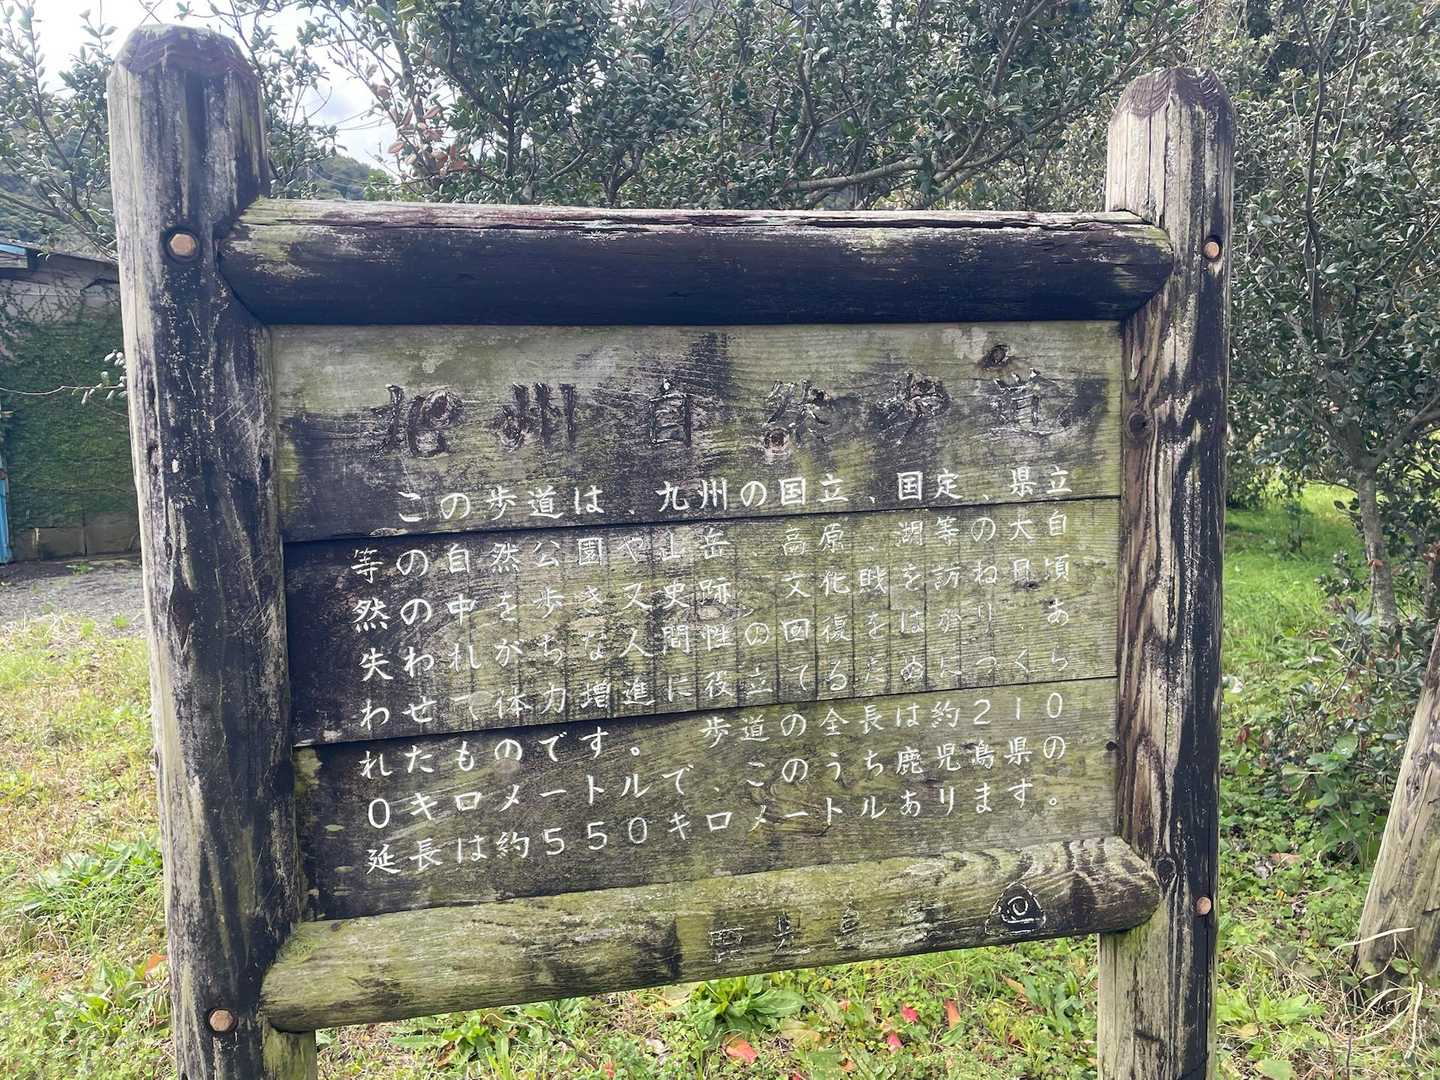 九州自然歩道
この歩道は、九州の国立、国定、県立
等の自然公園や山岳、高原、湖等の大自
然の中を歩き又史跡、文化財を訪ね日頃
失われがちな人間性の回復をはかり、あ
わせて体力増進に役立てるためにつくら
れたものです。 歩道の全長は約210
0キロメートルで、このうち鹿児島県の
延長は約550キロメートルあります。